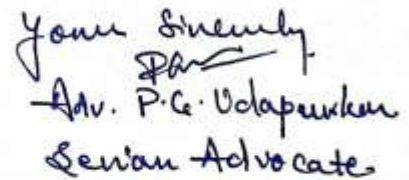 Your Sincerely
Adv. P.G. Udapurkar
Senior Advocate